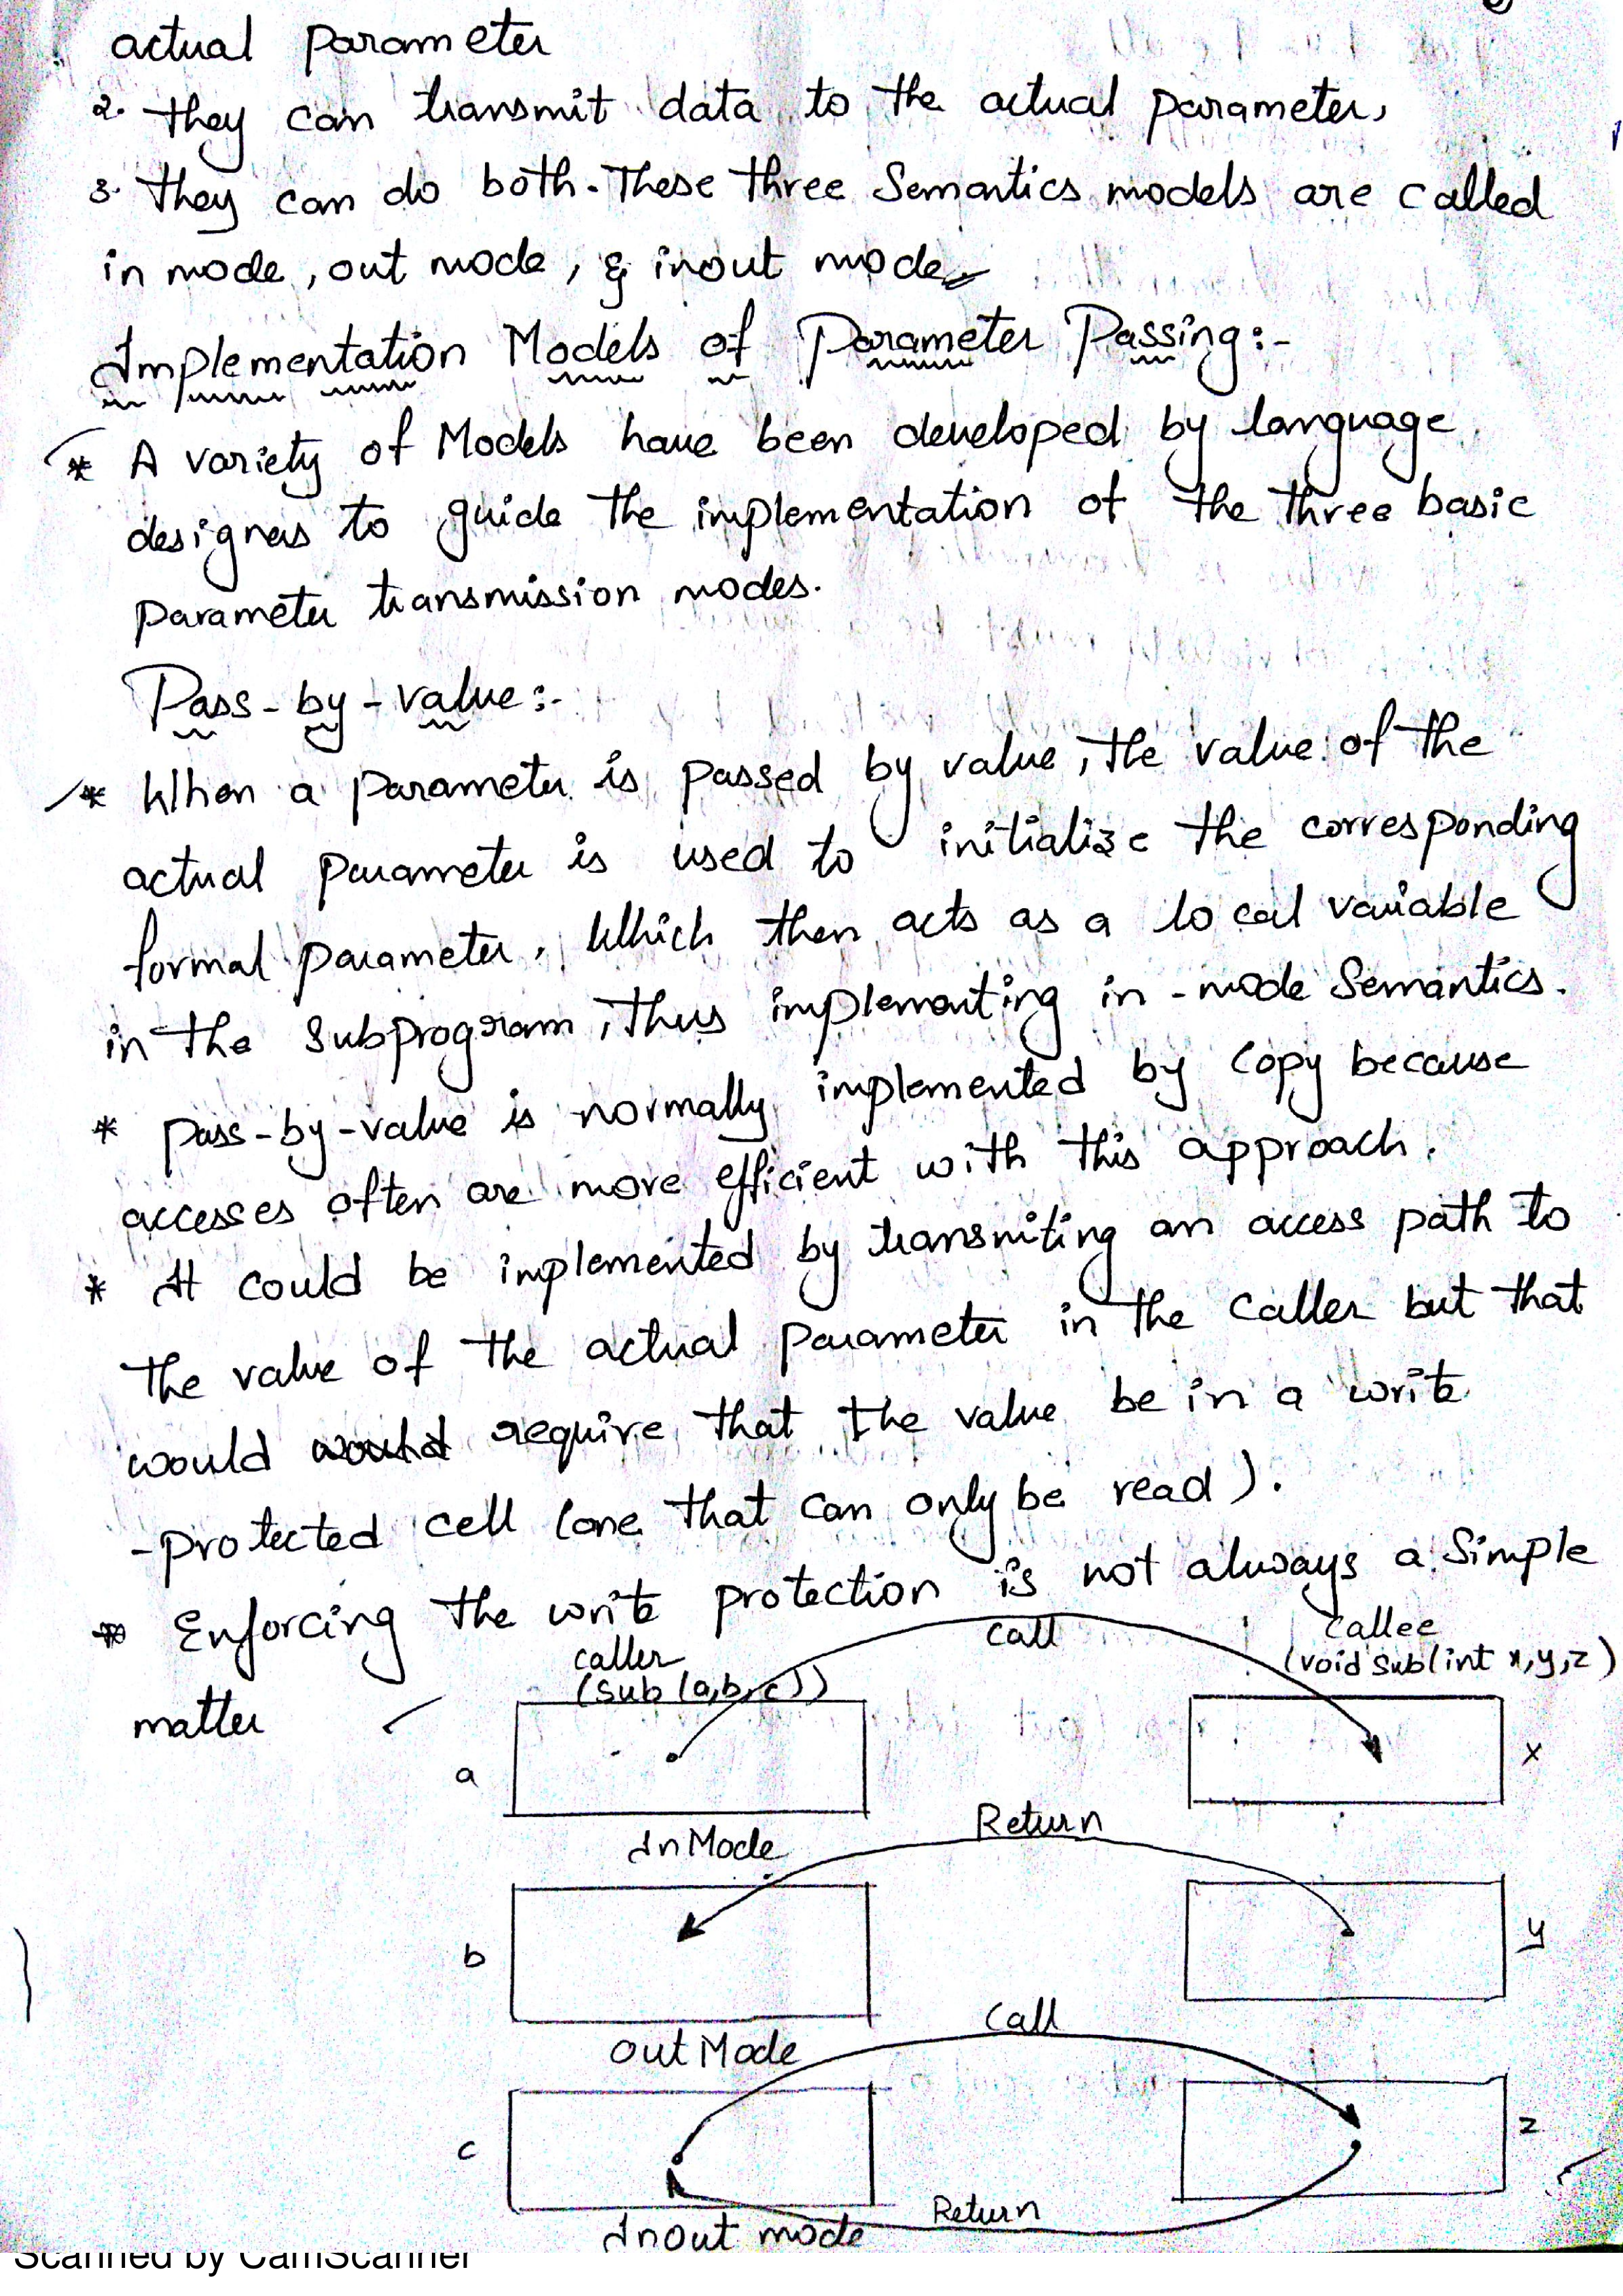 actual parameter
2. They can transmit data to the actual parameter,
3. They can do both. These three Semantics models are called
in mode, out mode, & inout mode
Implementation Models of Parameter Passing:-
* A variety of Models have been developed by language
designers to guide the implementation of the three basic
parameter transmission modes.
Pass-by-value:-
* When a parameter is passed by value, the value of the
actual parameter is used to initialize the corresponding
formal parameter, Which then acts as a local variable
in the subprogram, thus implementing in-mode Semantics.
* pass-by-value is normally implemented by Copy because
accesses often are more efficient with this approach.
* It could be implemented by transmiting an access path to
the value of the actual parameter in the caller but that
would would require that the value be in a write
-protected cell (one that can only be read).
* Enforcing the write protection is not always a Simple
matter
caller
(Sub(a,b,c))
call
callee
(void sub(int x,y,z)
a
x
In Mode
Return
b
y
out Mode
Call
c
z
Return
Inout mode
Scanned by CamScanner